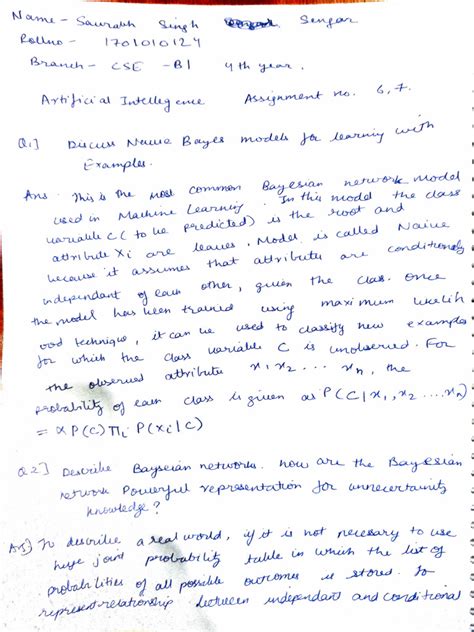 Name - Saurabh Singh Sengar
Rollno - 1701010124
Branch - CSE - B1 4th year.
Artificial Intellegence Assignment no. 6,7.
Q.1] Discuss Naive Bayes models for learning with
Examples.
Ans. This is the most common Bayesian network model
used in Machine Learning. In this model the class
variable C (to be predicted) is the root and
attribute Xi are leaves, Model is called Naive
because it assumes that attribute are conditionally
independant of each other, given the class. Once
the model has been trained using maximum likelih
ood technique, it can be used to classify new examples
for which the class variable C is unobserved. For
the observed attribute x1 x2 ... xn, the
probability of each class is given as P(C|x1, x2 ... xn)
= α P(C) Πi P(xi|C)
Q.2] Describe Baysian networks. How are the Bayesian
network Powerful representation for unnecertainity
knowledge?
Ans] To describe a real world, if it is not necessary to use
huge joint probability table in which the list of
probabilities of all possible outcomes is stored. To
represent relationship between independant and conditional